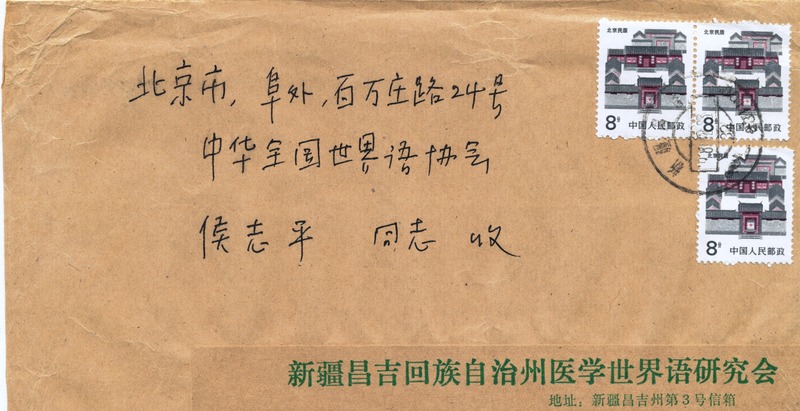 北京民居
北京民居
8分 中国人民邮政
8分 中国人民邮政
北京民居
8分 中国人民邮政
北京市,阜外,百万庄路24号
中华全国世界语协会
侯志平 同志 收
新疆昌吉回族自治州医学世界语研究会
地址:新疆昌吉州第3号信箱